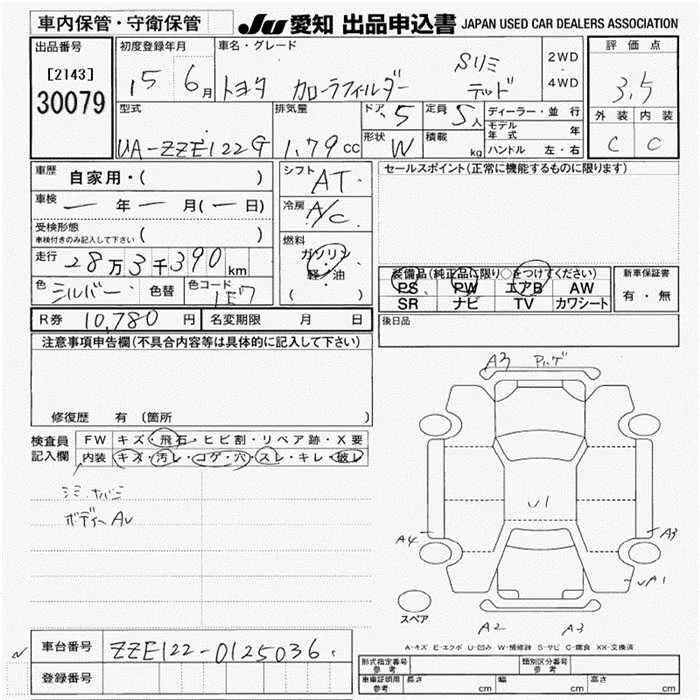 車内保管・守衛保管
JU 愛知 出品申込書 JAPAN USED CAR DEALERS ASSOCIATION
出品番号
[2143]
30079
初度登録年月
15 6月
車名・グレード
トヨタ カローラフィールダー Sリミテッド
2WD
4WD
評価点
3.5
外装 内装
C C
型式
UA-ZZE122G
排気量
1.79cc
ドア 5
形状 W
定員 5人
積載 kg
ディーラー・並行
モデル年式 年
ハンドル 左・右
車歴 自家用・( )
車検 ー年ー月(ー日)
受検形態
車検付きのみ記入して下さい ( )
走行 28万3千390km
色 シルバー 色替 色コード 1E7
シフト AT
冷房 A/C
燃料
ガソリン
軽・油
( )
セールスポイント(正常に機能するものに限ります)
装備品(純正品に限り○をつけてください)
PS PW エアB AW
SR ナビ TV カワシート
新車保証書
有・無
後日品
R券 10,780円 名変期限 月 日
注意事項申告欄(不具合内容等は具体的に記入して下さい)
修復歴 有(箇所 )
検査員記入欄
FW キズ・飛石・ヒビ割・リペア跡・X要
内装 キズ・汚レ・コゲ・穴・スレ・キレ・破レ
ボディーAU
A3
U1
A4
A3
UA1
スペア
A2 A3
A-キズ E-エクボ U-凹み W-補修跡 S-サビ C-腐食 XX-交換済
車台番号 ZZE122-0125036
登録番号
形式指定番号 参考
類別区分番号 参考
車庫証明用 参考 長さ cm 幅 cm 高さ cm